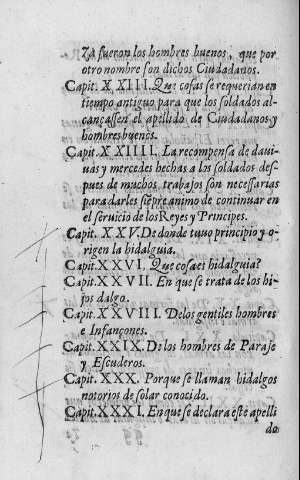 Za fueron los hombres buenos, que por
otro nombre son dichos Ciudadanos.
Capit. XXIII. Que cosas se requerian en
tiempo antiguo para que los soldados al-
cançassen el apellido de Ciudadanos y
hombres buenos.
Capit. XXIIII. La recompensa de dauiuas
y mercedes hechas a los soldados des-
pues de muchos trabajos son necessarias
para darles siẽpre animo de continuar en
el seruicio de los Reyes y Principes.
Capit. XXV. De donde tuuo principio y o-
rigen la hidalguia.
Capit. XXVI. Que cosa es hidalguia?
Capit. XXVII. En que se trata de los hi-
jos dalgo.
Capit. XXVIII. De los gentiles hombres
e Infançones.
Capit. XXIX. De los hombres de Paraje
y Escuderos.
Capit. XXX. Porque se llaman hidalgos
notorios de solar conocido.
Capit. XXXI. En que se declara este apelli
do